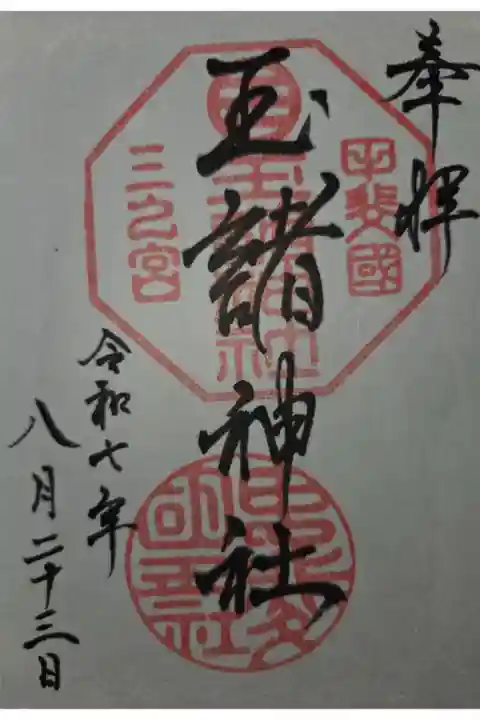 奉拝
甲斐國
玉諸神社
三之宮
令和七年
八月二十三日